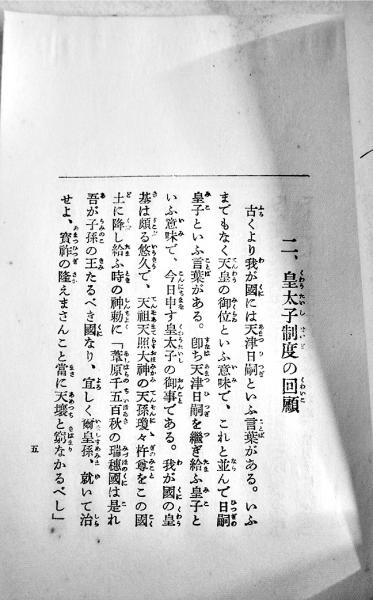 二、皇太子制度の回顧
古くより我が國には天津日嗣といふ言葉がある。いふ
までもなく天皇の御位といふ意味で、これと並んで日嗣
皇子といふ言葉がある。卽ち天津日嗣を繼ぎ給ふ皇子と
いふ意味で、今日申す皇太子の御事である。我が國の皇
基は頗る悠久で、天祖天照大神の天孫瓊々杵尊をこの國
土に降し給ふ時の神勅に「葦原千五百秋の瑞穗國は是れ
吾が子孫の王たるべき國なり、宜しく爾皇孫、就いて治
せよ、寶祚の隆えまさんこと當に天壤と窮なかるべし」
五